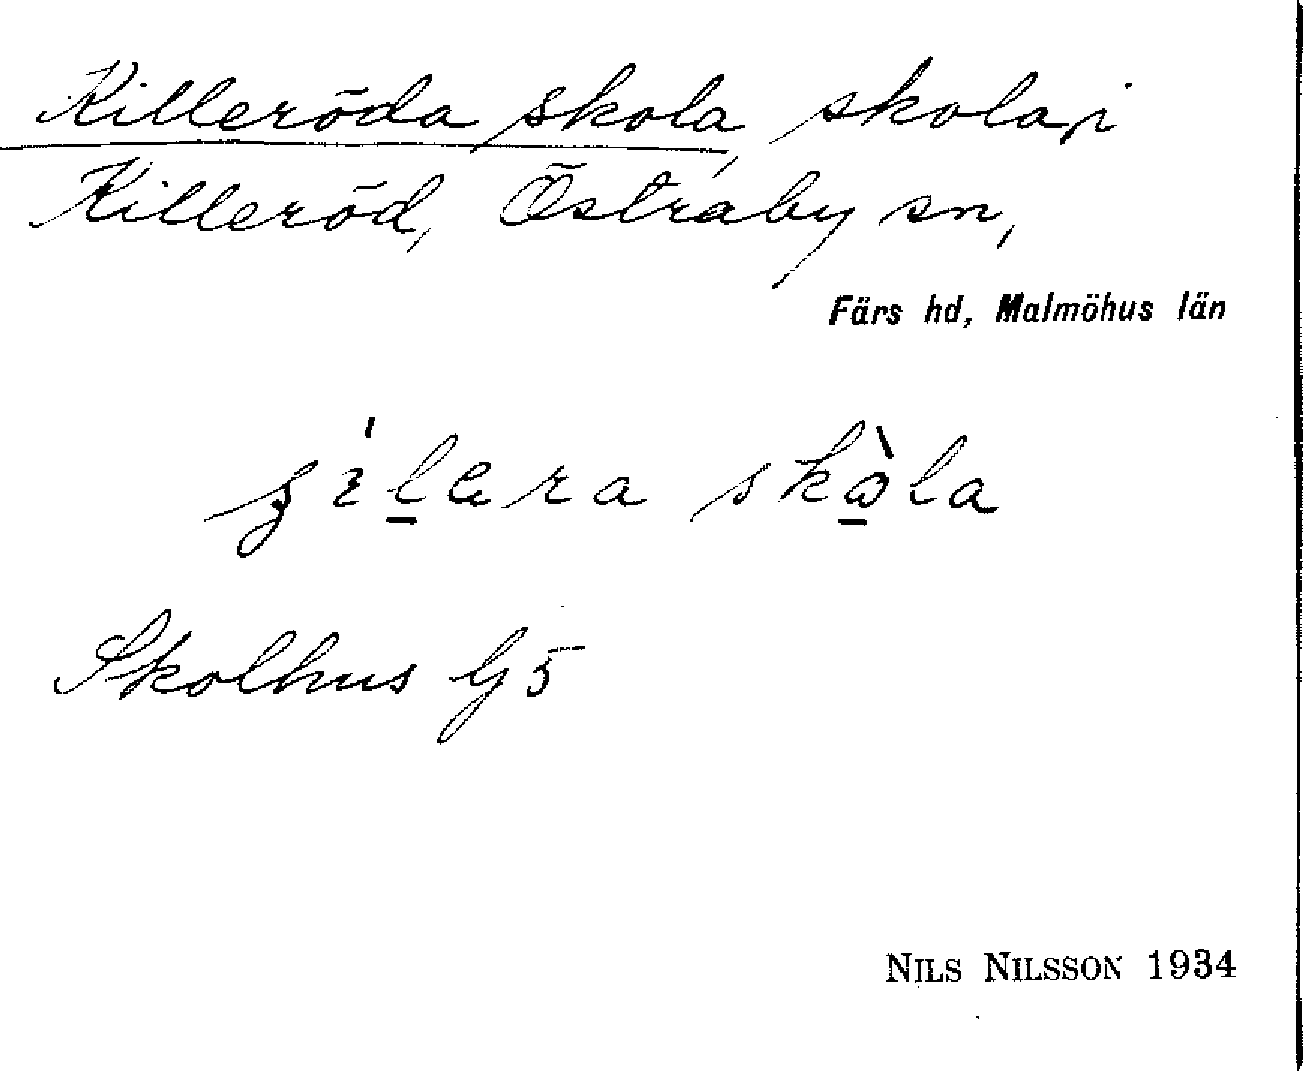 Killeröda skola, skola i
Killeröd, Östraby sn,
Färs hd, Malmöhus län
skola
Skolhus G5
NILS NILSSON 1934